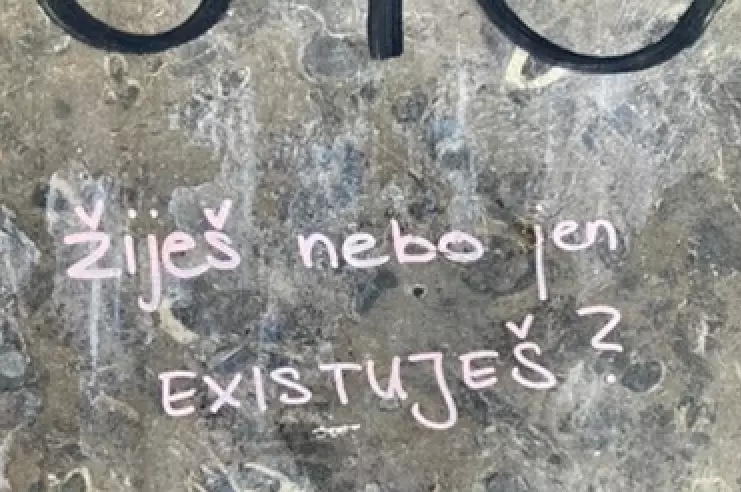 Žiješ nebo jen
EXISTUJEŠ?